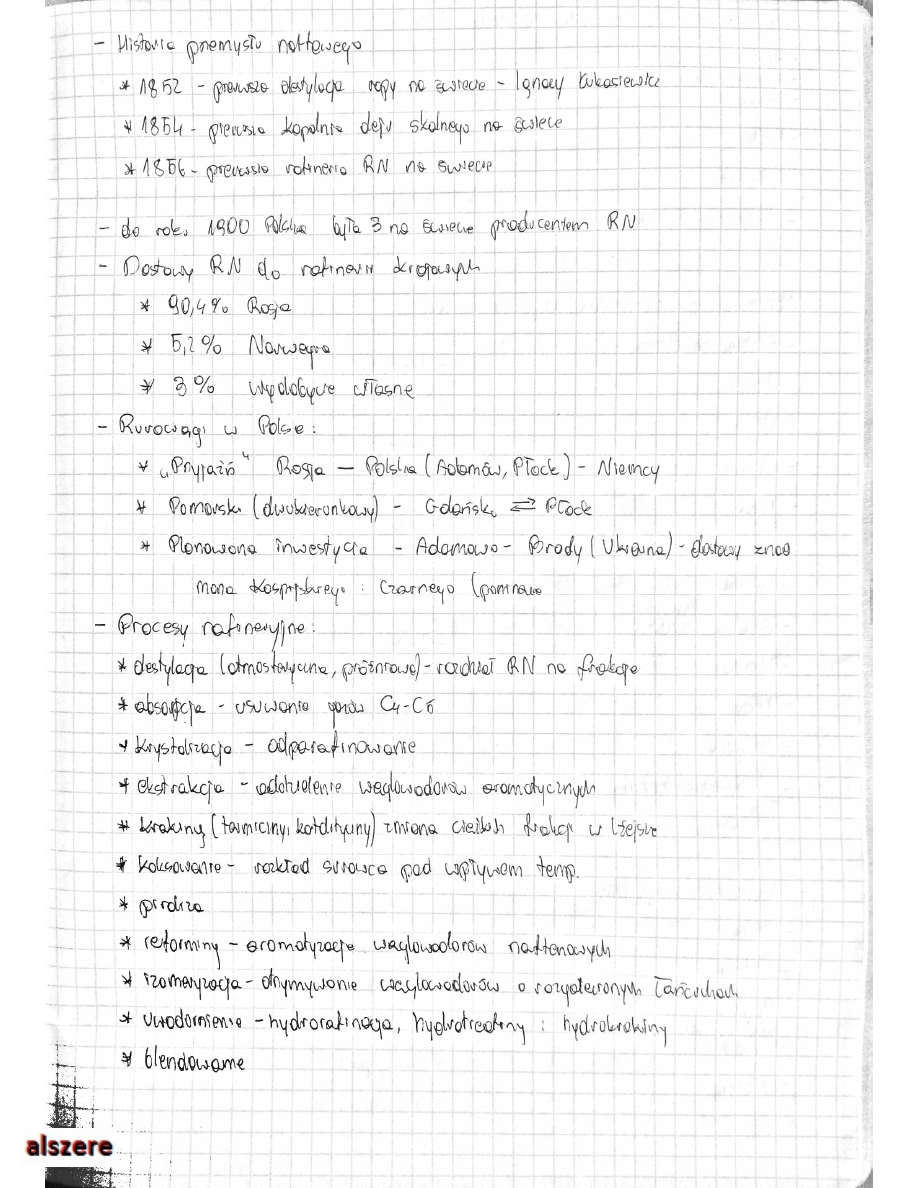 - Historia przemysłu naftowego
* 1852 - pierwsza destylacja ropy na świecie - Ignacy Łukasiewicz
* 1854 - pierwsza kopalnia oleju skalnego na świecie
* 1856 - pierwsza rafineria RN na świecie
- do roku 1900 Polska była 3 na świecie producentem RN
- Dostawy RN do rafinerii krajowych
* 90,4% Rosja
* 5,2% Norwegia
* 3% wydobycie własne
- Rurociągi w Polsce:
* "Przyjaźń" Rosja — Polska (Adamów, Płock) - Niemcy
* Pomorski (dwukierunkowy) - Gdańsk ⇄ Płock
* Planowana inwestycja - Adamowo - Brody (Ukraina) - dostawy znad
morza Kaspijskiego i Czarnego
- Procesy rafineryjne:
* destylacja (atmosferyczna, próżniowa) - rozdział RN na frakcje
* absorpcja - usuwanie gazów C4-C6
* krystalizacja - odparafinowanie
* ekstrakcja - oddzielenie węglowodorów aromatycznych
* kraking (termiczny, katalityczny) zmiana ciężkich frakcji w lżejsze
* koksowanie - rozkład surowca pod wpływem temp.
* piroliza
* reforming - aromatyzacja węglowodorów naftenowych
* izomeryzacja - otrzymywanie węglowodorów o rozgałęzionych łańcuchach
* uwodornienie - hydrorafinacja, hydrotreating i hydrokraking
* blendowanie
alszere